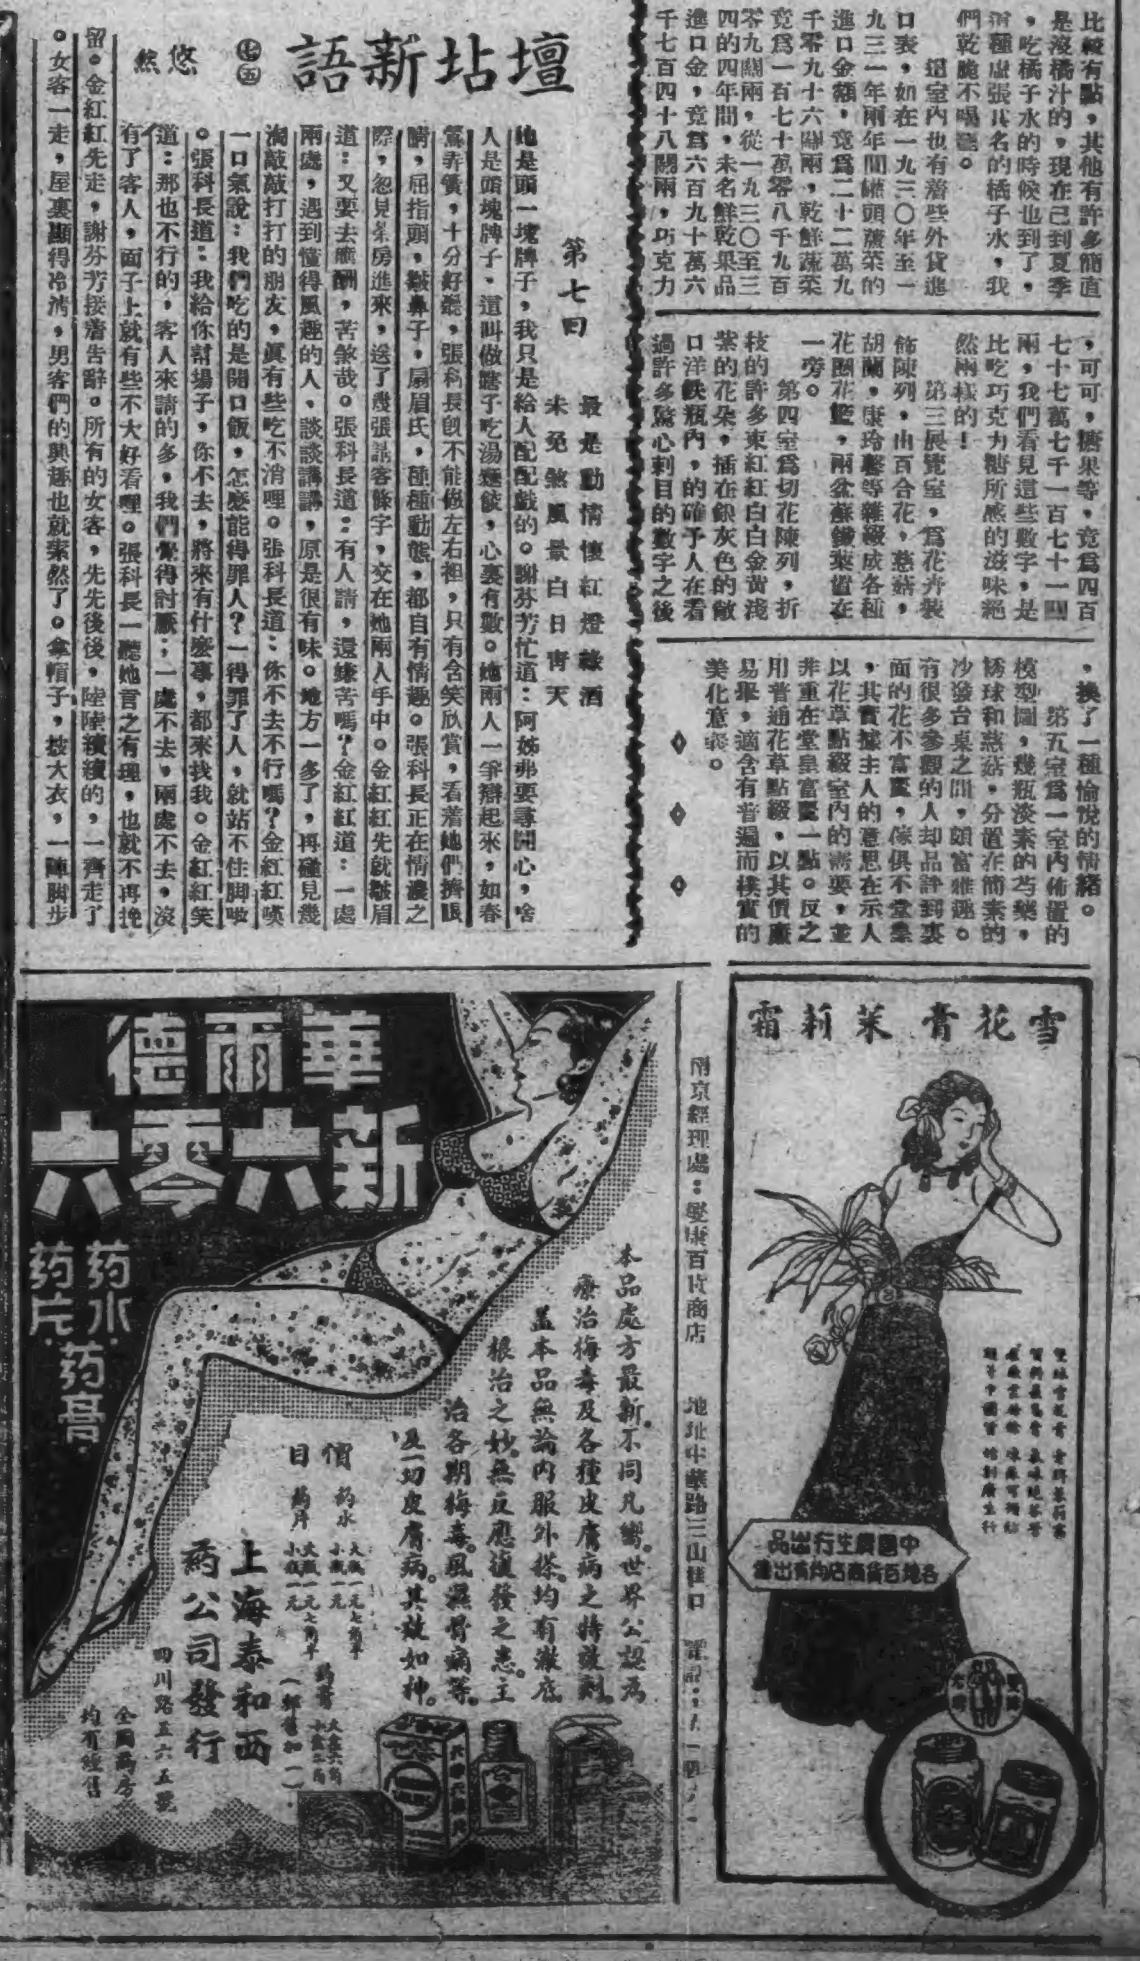 比較有點，其他有許多簡直
是沒橘汁的，現在已到夏季
，吃橘子水的時候也到了，
這種虛張其名的橘子水，我
們乾脆不喝罷。
這室內也有着些外貨進
口表，如在一九三〇年至一
九三一年兩年間罐頭蔬菜的
進口金額，竟爲二十二萬九
千零九十六關兩，乾鮮蔬菜
竟爲一百七十萬零八千九百
零九關兩，從一九三〇至三
四的四年間，未名鮮乾果品
進口金，竟爲六百九十萬六
千七百四十八關兩，巧克力
，可可，糖果等，竟爲四百
七十七萬七千一百七十一關
兩，我們看見這些數字，是
比吃巧克力糖所感的滋味絕
然兩樣的！
第三展覽室，爲花卉裝
飾陳列，由百合花，慈菇，
胡蘭，康玲馨等雜綴成各種
花圈花籃，兩盆蘇鐵葉置在
一旁。
第四室爲切花陳列，折
枝的許多束紅紅白白金黃淺
紫的花朵，插在銀灰色的敞
口洋鉄瓶內，的確予人在看
過許多驚心刺目的數字之後
，換了一種愉悅的情緒。
第五室爲一室內佈置的
模型圖，幾瓶淡素的芍藥，
綉球和慈菇，分置在簡素的
沙發台桌之間，頗富雅趣。
有很多參觀的人却品評到裏
面的花不富麗，傢俱不堂皇
，其實據主人的意思在示人
以花草點綴室內的需要，並
非重在堂皇富麗一點。反之
用普通花草點綴，以其價廉
易舉，適含有普遍而樸實的
美化意義。
壇坫新語
七五
悠然
第七回
最是動情懷紅燈綠酒
未免煞風景白日青天
她是頭一塊牌子，我只是給人配配戲的。謝芬芳忙道：阿姊弗要尋開心，啥
人是頭塊牌子。這叫做瞎子吃湯麵餃，心裏有數。她兩人一爭辯起來，如春
鶯弄簧，十分好聽，張科長旣不能做左右袒，只有含笑欣賞，看着她們擠眼
睛，屈指頭，皺鼻子，扇眉氏，種種動態，都自有情趣。張科長正在情濃之
際，忽見茶房進來，送了幾張請客條字，交在她兩人手中。金紅紅先就皺眉
道：又要去應酬，苦煞哉。張科長道：有人請，還嫌苦嗎？金紅紅道：一處
兩處，遇到懂得風趣的人，談談講講，原是很有味。地方一多了，再碰見幾
淘敲敲打打的朋友，眞有些吃不消哩。張科長道：你不去不行嗎？金紅紅嘆
一口氣說：我們吃的是開口飯，怎麽能得罪人？一得罪了人，就站不住脚哦
。張科長道：我給你幫場子，你不去，將來有什麽事，都來找我。金紅紅笑
道：那也不行的，客人來請的多，我們覺得討厭；一處不去，兩處不去，沒
有了客人，面子上就有些不大好看哩。張科長一聽她言之有理，也就不再挽
留。金紅紅先走，謝芬芳接着告辭。所有的女客，先先後後，陸陸續續的，一齊走了
。女客一走，屋裏顯得冷清，男客們的興趣也就索然了。拿帽子，披大衣，一陣脚步
雪花膏 茉莉霜
中國廣生行出品
各埠百貨商店均有出售
雙妹
老牌
南京經理處：愛康百貨商店
地址中華路三山街口
華爾德
新六零六
药水
药片
药膏
本品處方最新。不同凡響。世界公認爲
療治梅毒及各種皮膚病之特效劑。
蓋本品無論內服外搽。均有澈底
根治之妙。無反應復發之患。主
治各期梅毒。風濕骨痛等。
及一切皮膚病。其效如神。
價目
药水
大瓶一元七角半
小瓶一元
药片
大瓶一元七角半
小瓶一元
药膏
大盒六角
小盒二角
（郵費加一）
上海泰和西
药公司發行
四川路五六五號
全國藥房
均有經售